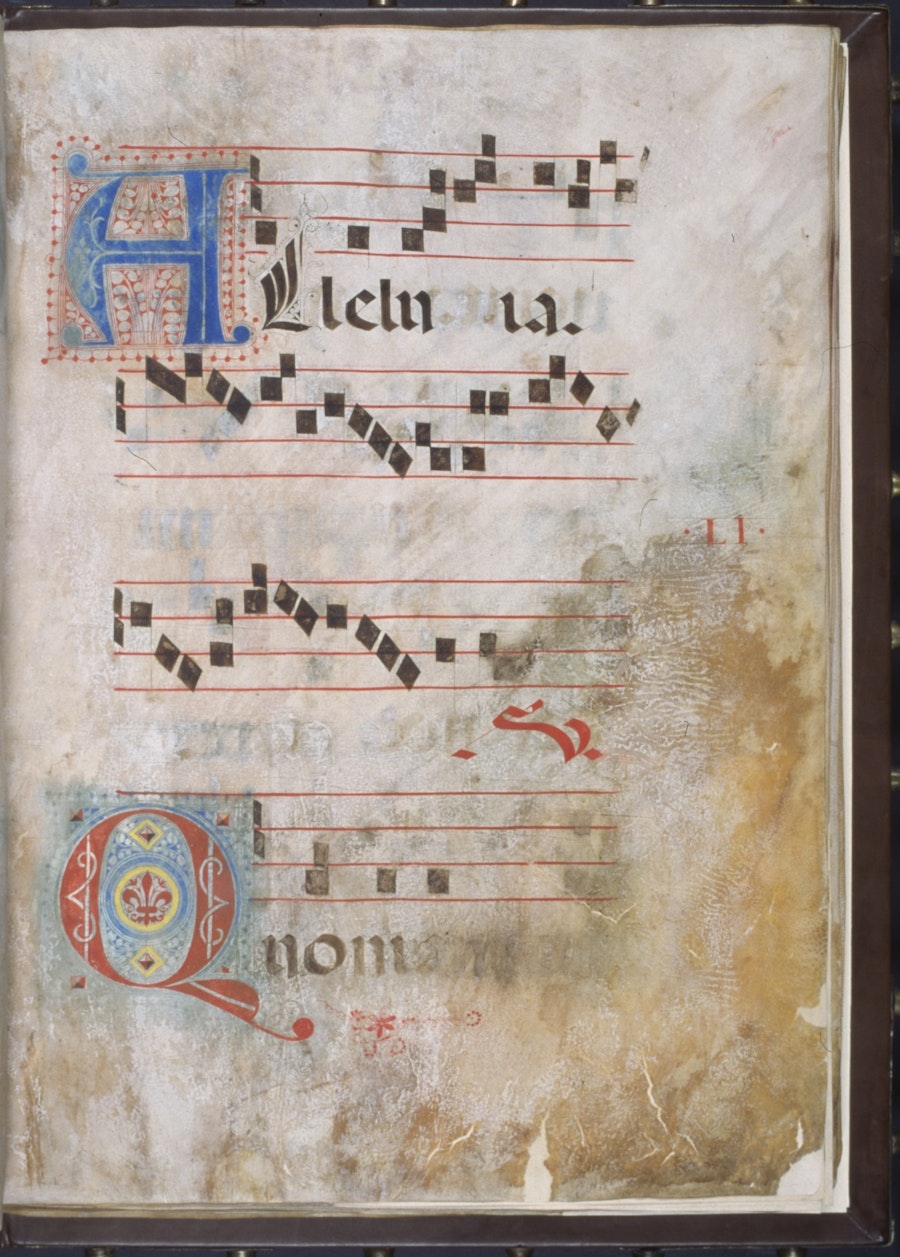 Alleluia.
·LI·
V.
Quoniam